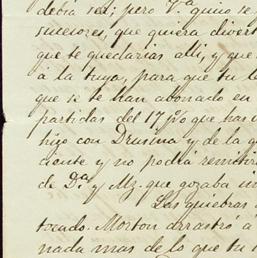 debia ser; pero V.ª quiso se
sucesores, que quiera divert
que te quedarias alli, y que
á la tuya, para que tu le
que se te han abonado en
partidas del 17 p% que has
hijo con Drusina y de la q
ciante y no podia remitir
de D.ª y Mz. que gozaba in
Las quiebras
tocado. Morton arrastró á
nada mas de lo que tu